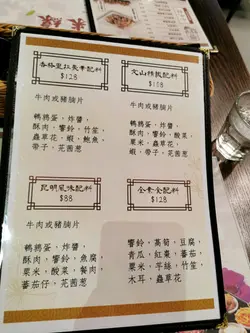 香格里拉長青配料
$128
牛肉或豬腩片
鵪鶉蛋，炸醬，
酥肉，響鈴，竹笙，
蟲草花，蝦，鮑魚
帶子，芫茜葱
火山辣椒配料
牛肉或豬腩片
鵪鶉蛋，炸醬，
酥肉，響鈴，酸菜，
粟米，草花，
蝦，帶子，芫茜葱
昆明風味配料
$88
牛肉或豬腩片
鵪鶉蛋，炸醬，
酥肉，響鈴，魚腐，
粟米，酸菜，餐肉，
蕃茄仔，芫茜葱
全素食配料
$128
響鈴，菌菊，豆腐，
青瓜，紅棗，蕃茄，
粟米，芋絲，竹笙，
木耳，蟲草花